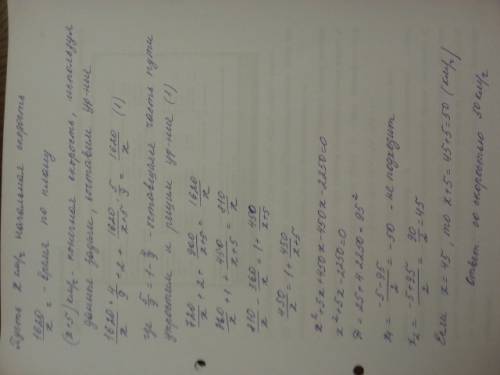 Пусть x км/ч начальная скорость
1620/x = время по плану
(x+5) км/ч - конечная скорость, используя
данные задачи, составим ур-ние
1620/x · 4/9 + 2 + 1620/x+5 · 5/9 = 1620/x (1)
где 5/9 = 1 - 4/9 - оставшаяся часть пути
упростим и решим ур-ние (1)
720/x + 2 + 900/x+5 = 1620/x
360/x + 1 + 450/x+5 = 810/x
810/x - 360/x = 1 + 450/x+5
450/x = 1 + 450/x+5
x² + 5x + 450x - 450x - 2250 = 0
x² + 5x - 2250 = 0
D = 25 + 4·2250 = 95²
x₁ = -5-95/2 = -50 - не подходит
x₂ = -5+95/2 = 90/2 = 45
Если x = 45, то x+5 = 45+5 = 50 (км/ч)
Ответ со скоростью 50 км/ч